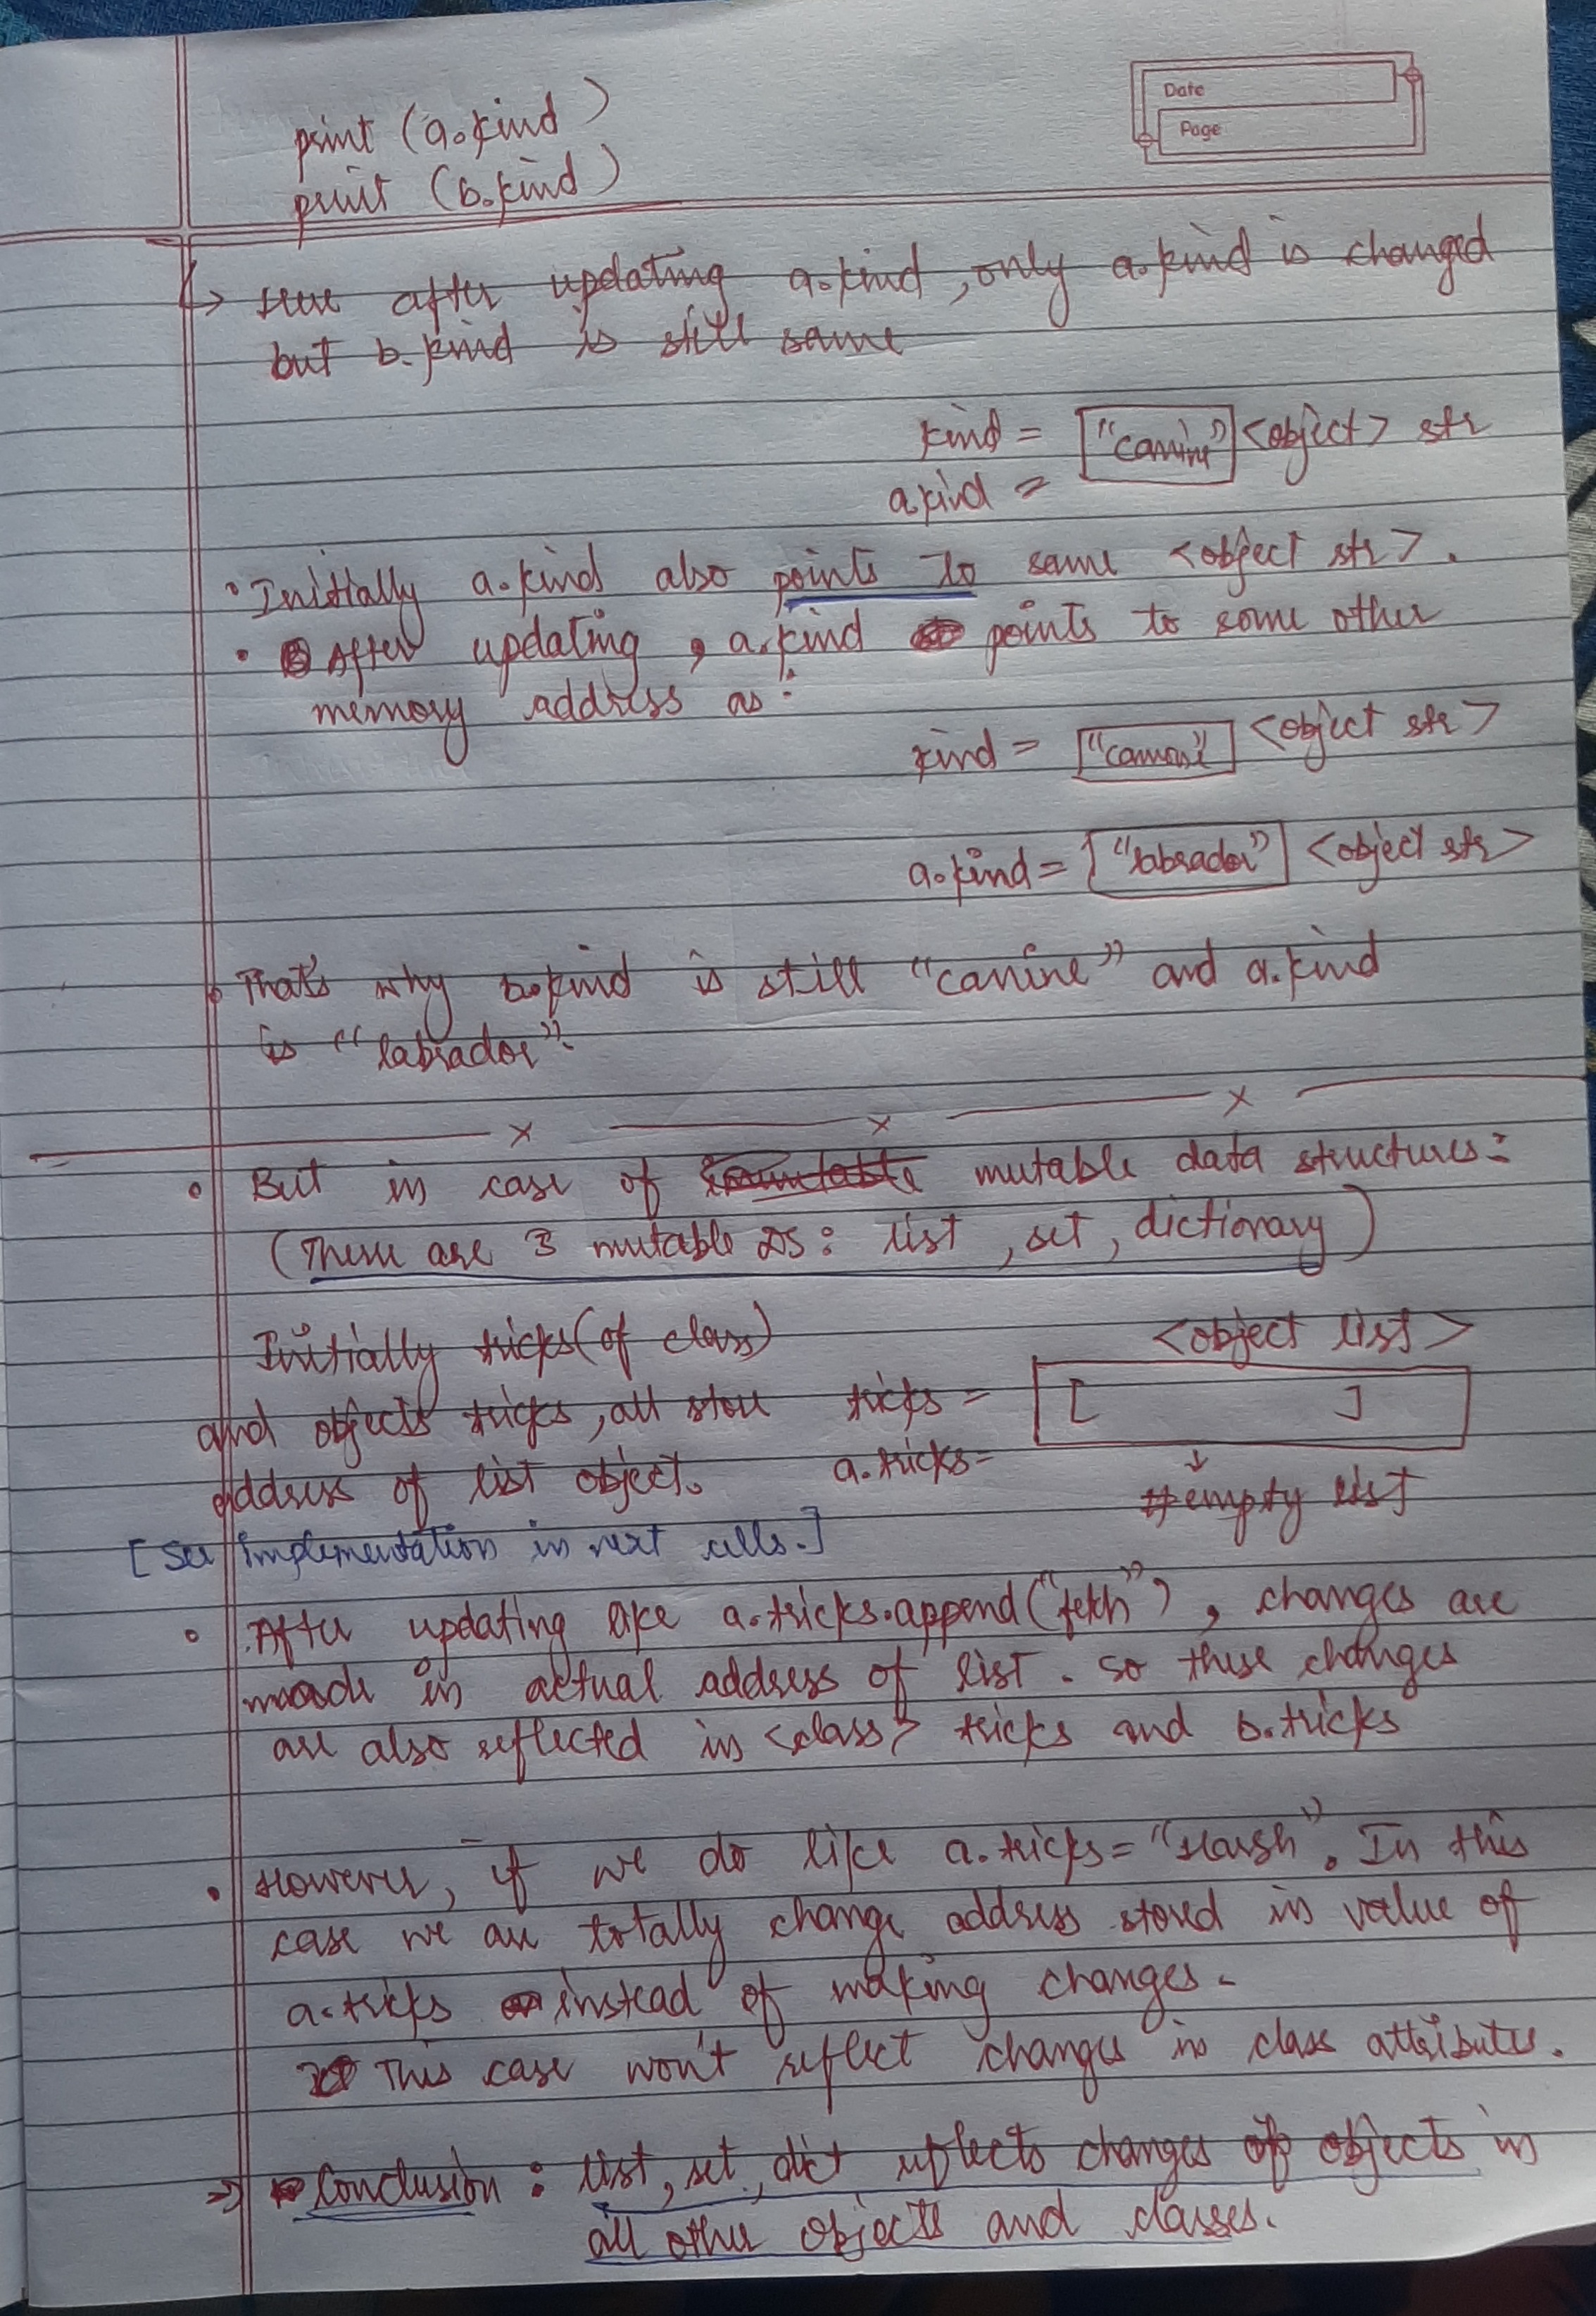 Date
Page
print (a.kind)
print (b.kind)
↳ Here after updating a.kind, only a.kind is changed
but b.kind is still same
kind = ["canine"] <object> str
a.kind =
• Initially a.kind also points to same <object str>.
• After updating, a.kind points to some other
memory address as:
kind = ["canine"] <object str>
a.kind = ["labrador"] <object str>
• That's why b.kind is still "canine" and a.kind
is "labrador".
• But in case of mutable data structures:
(There are 3 mutable DS: list, set, dictionary)
Initially tricks (of class)
<object list>
and objects tricks, all store
tricks = [ ]
address of list object.
a.tricks =
↓
# empty list
[See implementation in next cells.]
• After updating like a.tricks.append("fetch"), changes are
made in actual address of list. So these changes
are also reflected in <class> tricks and b.tricks
• However, if we do like a.tricks = "Harsh". In this
case we are totally change address stored in value of
a.tricks instead of making changes.
This case won't reflect changes in class attributes.
⇒ Conclusion: list, set, dict reflects changes of objects in
all other objects and classes.